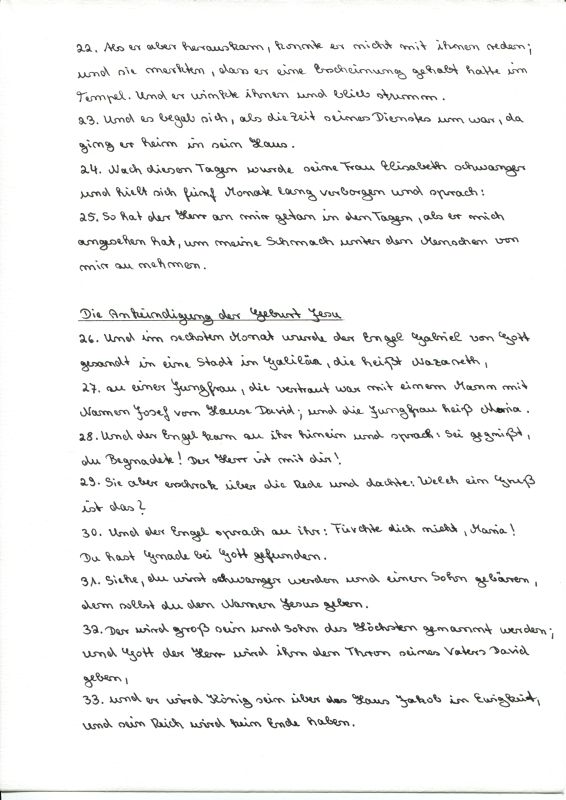 22. Als er aber herauskam, konnte er nicht mit ihnen reden;
und sie merkten, dass er eine Erscheinung gehabt hatte im
Tempel. Und er winkte ihnen und blieb stumm.
23. Und es begab sich, als die Zeit seines Dienstes um war, da
ging er heim in sein Haus.
24. Nach diesen Tagen wurde seine Frau Elisabeth schwanger
und hielt sich fünf Monate lang verborgen und sprach:
25. So hat der Herr an mir getan in den Tagen, als er mich
angesehen hat, um meine Schmach unter den Menschen von
mir zu nehmen.
Die Ankündigung der Geburt Jesu
26. Und im sechsten Monat wurde der Engel Gabriel von Gott
gesandt in eine Stadt in Galiläa, die heißt Nazareth,
27. zu einer Jungfrau, die vertraut war mit einem Mann mit
Namen Josef vom Hause David; und die Jungfrau hieß Maria.
28. Und der Engel kam zu ihr hinein und sprach: Sei gegrüßt,
du Begnadete! Der Herr ist mit dir!
29. Sie aber erschrak über die Rede und dachte: Welch ein Gruß
ist das?
30. Und der Engel sprach zu ihr: Fürchte dich nicht, Maria!
Du hast Gnade bei Gott gefunden.
31. Siehe, du wirst schwanger werden und einen Sohn gebären,
dem sollst du den Namen Jesus geben.
32. Der wird groß sein und Sohn des Höchsten genannt werden;
und Gott der Herr wird ihm den Thron seines Vaters David
geben,
33. und er wird König sein über das Haus Jakob in Ewigkeit,
und sein Reich wird kein Ende haben.